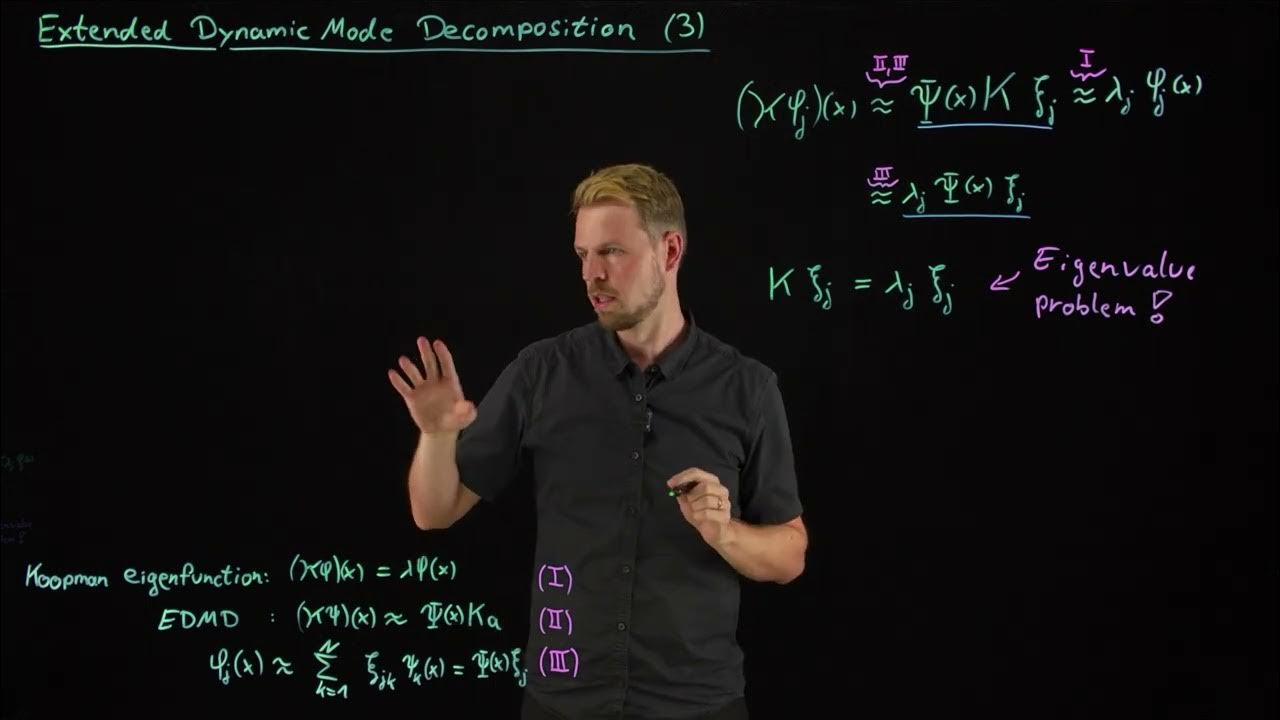 Extended Dynamic Mode Decomposition (3)
II,III I
(𝒦φⱼ)(x) ≈ Ψ(x) K ξⱼ ≈ λⱼ φⱼ(x)
III
≈ λⱼ Ψ(x) ξⱼ
K ξⱼ = λⱼ ξⱼ ← Eigenvalue
problem!
Koopman eigenfunction: (𝒦φ)(x) = λφ(x) (I)
EDMD : (𝒦ψ)(x) ≈ Ψ(x)Ka (II)
φⱼ(x) ≈ ∑_{k=1}^{N} ξⱼₖ ψₖ(x) = Ψ(x)ξⱼ (III)